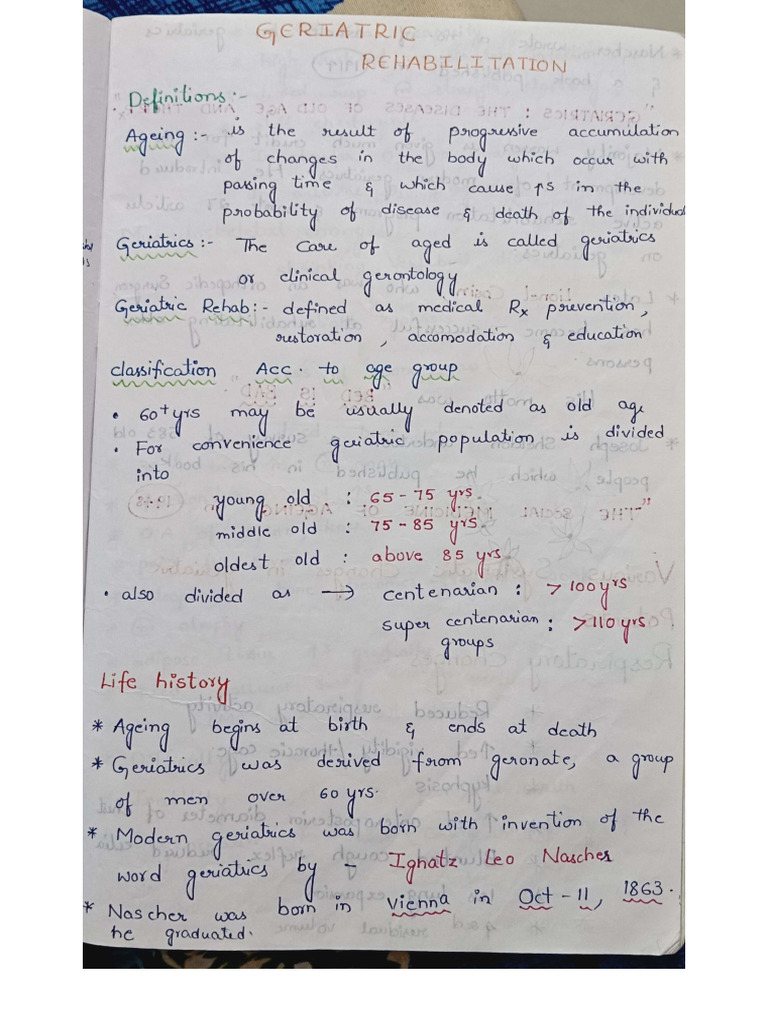 GERIATRIC
REHABILITATION
Definitions :-
Ageing :- is the result of progressive accumulation
of changes in the body which occur with
passing time & which cause ↑s in the
probability of disease & death of the individual
Geriatrics :- The care of aged is called geriatrics
or clinical gerontology
Geriatric Rehab :- defined as medical Rx prevention,
restoration, accomodation & education
classification Acc. to age group
• 60+ yrs may be usually denoted as old age
• For convenience geriatric population is divided
into
young old : 65 - 75 yrs.
middle old : 75 - 85 yrs.
oldest old : above 85 yrs.
• also divided as → centenarian : > 100 yrs
super centenarian : > 110 yrs
groups
Life history
* Ageing begins at birth & ends at death
* Geriatrics was derived from geronate, a group
of men over 60 yrs.
* Modern geriatrics was born with invention of the
word geriatrics by - Ighatz Leo Nascher
* Nascher was born in Vienna in Oct - 11, 1863.
he graduated.